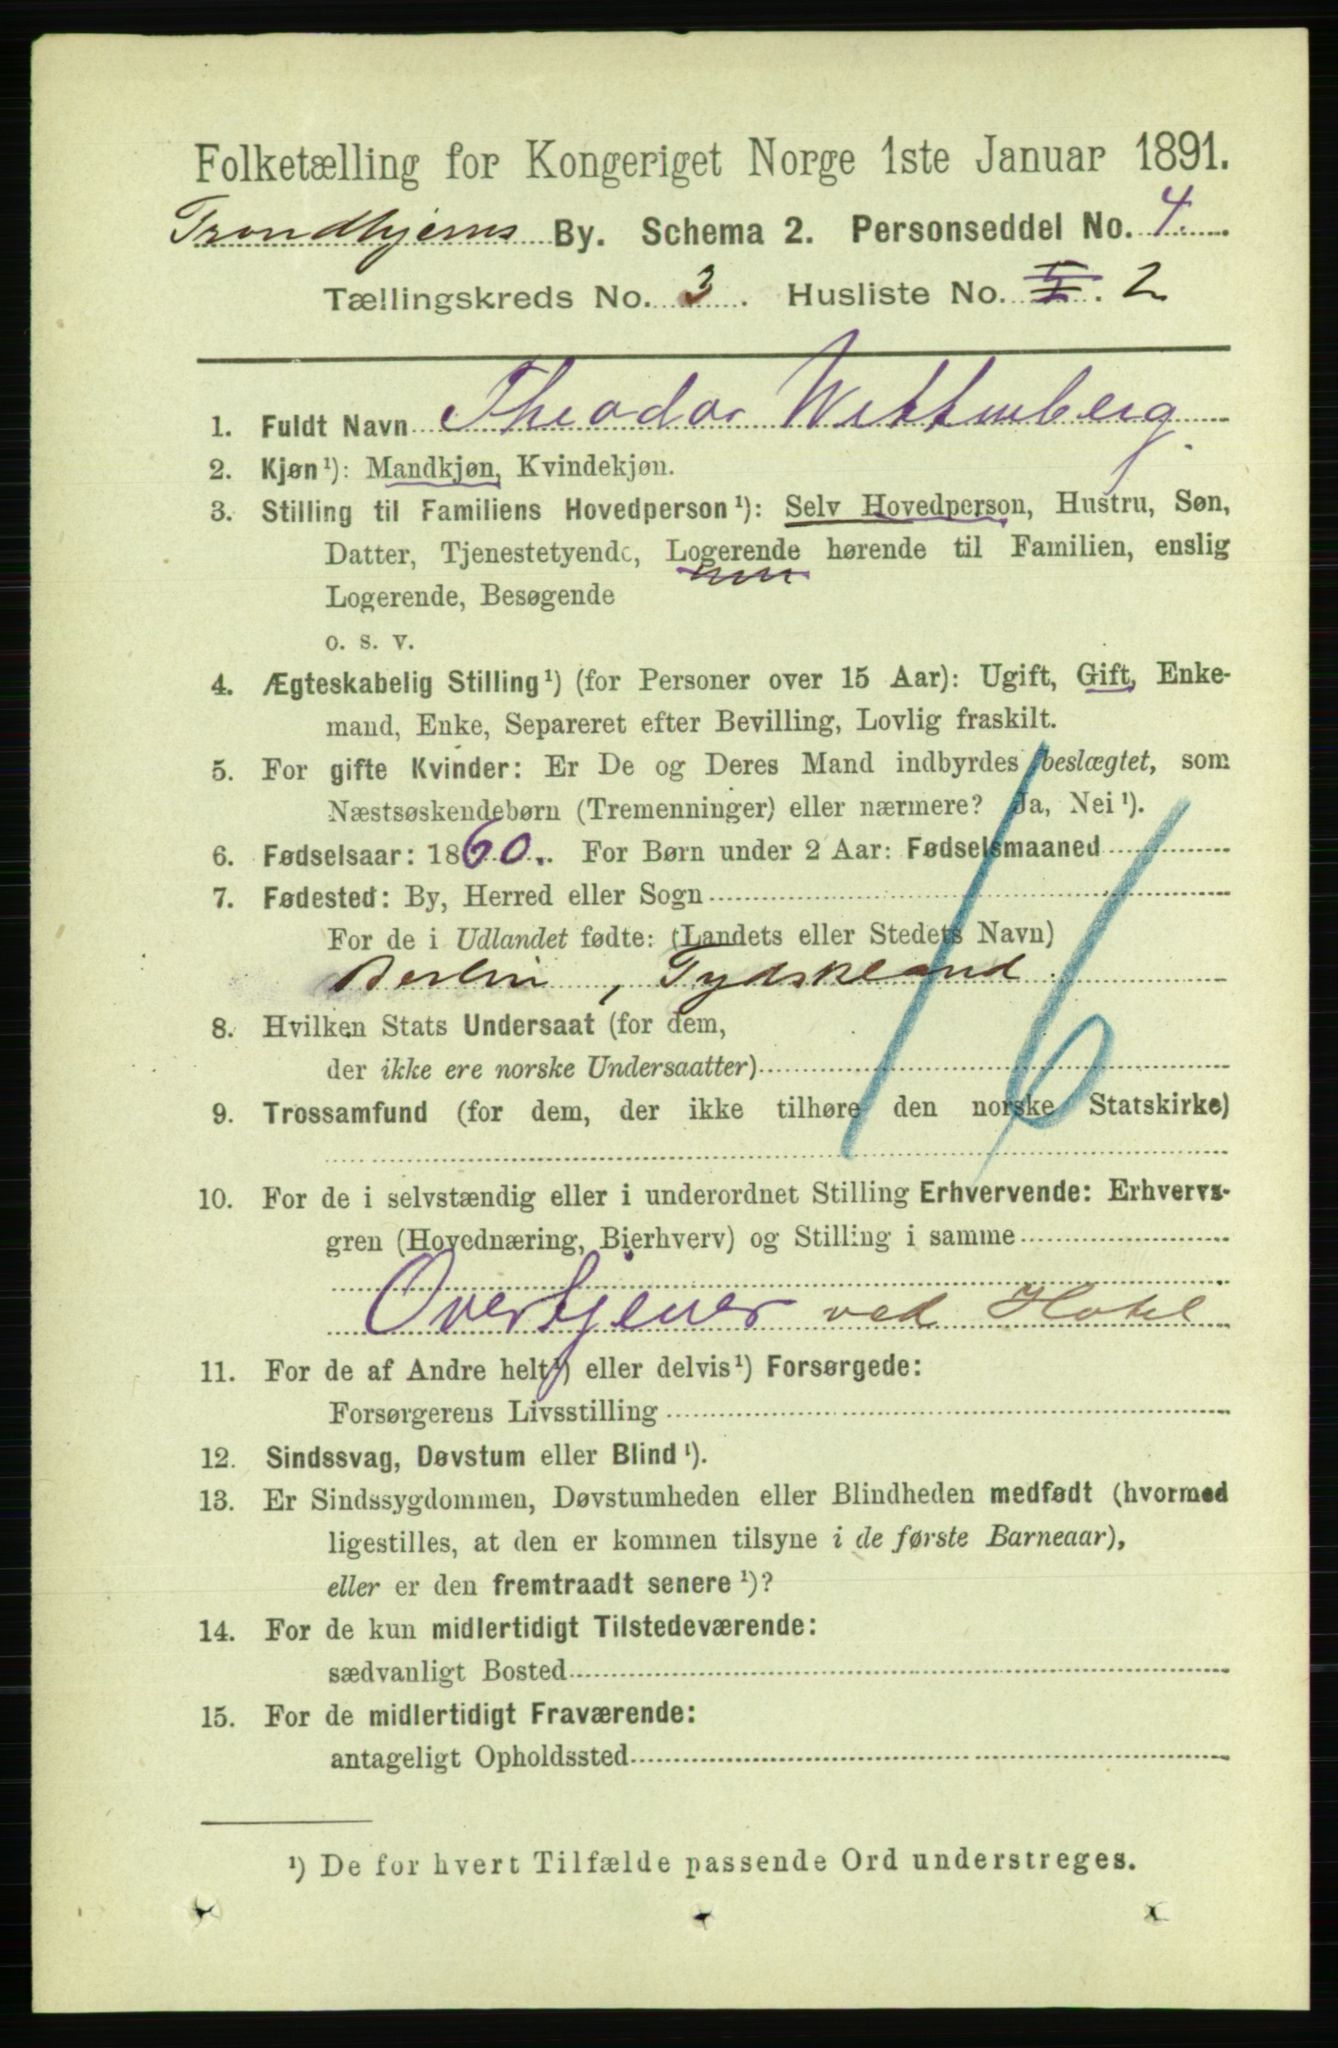 Folketælling for Kongeriget Norge 1ste Januar 1891.
Trondhjems By. Schema 2. Personseddel No. 4.
Tællingskreds No. 3. Husliste No. 2
1. Fuldt Navn Theodor Wittenberg
2. Kjøn¹): Mandkjøn, Kvindekjøn.
3. Stilling til Familiens Hovedperson¹): Selv Hovedperson, Hustru, Søn,
Datter, Tjenestetyende, Logerende hørende til Familien, enslig
Logerende, Besøgende
o. s. v.
4. Ægteskabelig Stilling¹) (for Personer over 15 Aar): Ugift, Gift, Enke-
mand, Enke, Separeret efter Bevilling, Lovlig fraskilt.
5. For gifte Kvinder: Er De og Deres Mand indbyrdes beslægtet, som
Næstsøskendebørn (Tremenninger) eller nærmere? Ja, Nei¹).
6. Fødselsaar: 1860. For Børn under 2 Aar: Fødselsmaaned
7. Fødested: By, Herred eller Sogn
For de i Udlandet fødte: (Landets eller Stedets Navn)
Berlin, Tydskland.
8. Hvilken Stats Undersaat (for dem,
der ikke ere norske Undersaatter)
16
9. Trossamfund (for dem, der ikke tilhøre den norske Statskirke)
10. For de i selvstændig eller i underordnet Stilling Erhvervende: Erhvervs-
gren (Hovednæring, Bierhverv) og Stilling i samme
Overtjener ved Hotel
11. For de af Andre helt¹) eller delvis¹) Forsørgede:
Forsørgerens Livsstilling
12. Sindssvag, Døvstum eller Blind¹).
13. Er Sindssygdommen, Døvstumheden eller Blindheden medfødt (hvormed
ligestilles, at den er kommen tilsyne i de første Barneaar),
eller er den fremtraadt senere¹)?
14. For de kun midlertidigt Tilstedeværende:
sædvanligt Bosted
15. For de midlertidigt Fraværende:
antageligt Opholdssted
¹) De for hvert Tilfælde passende Ord understreges.